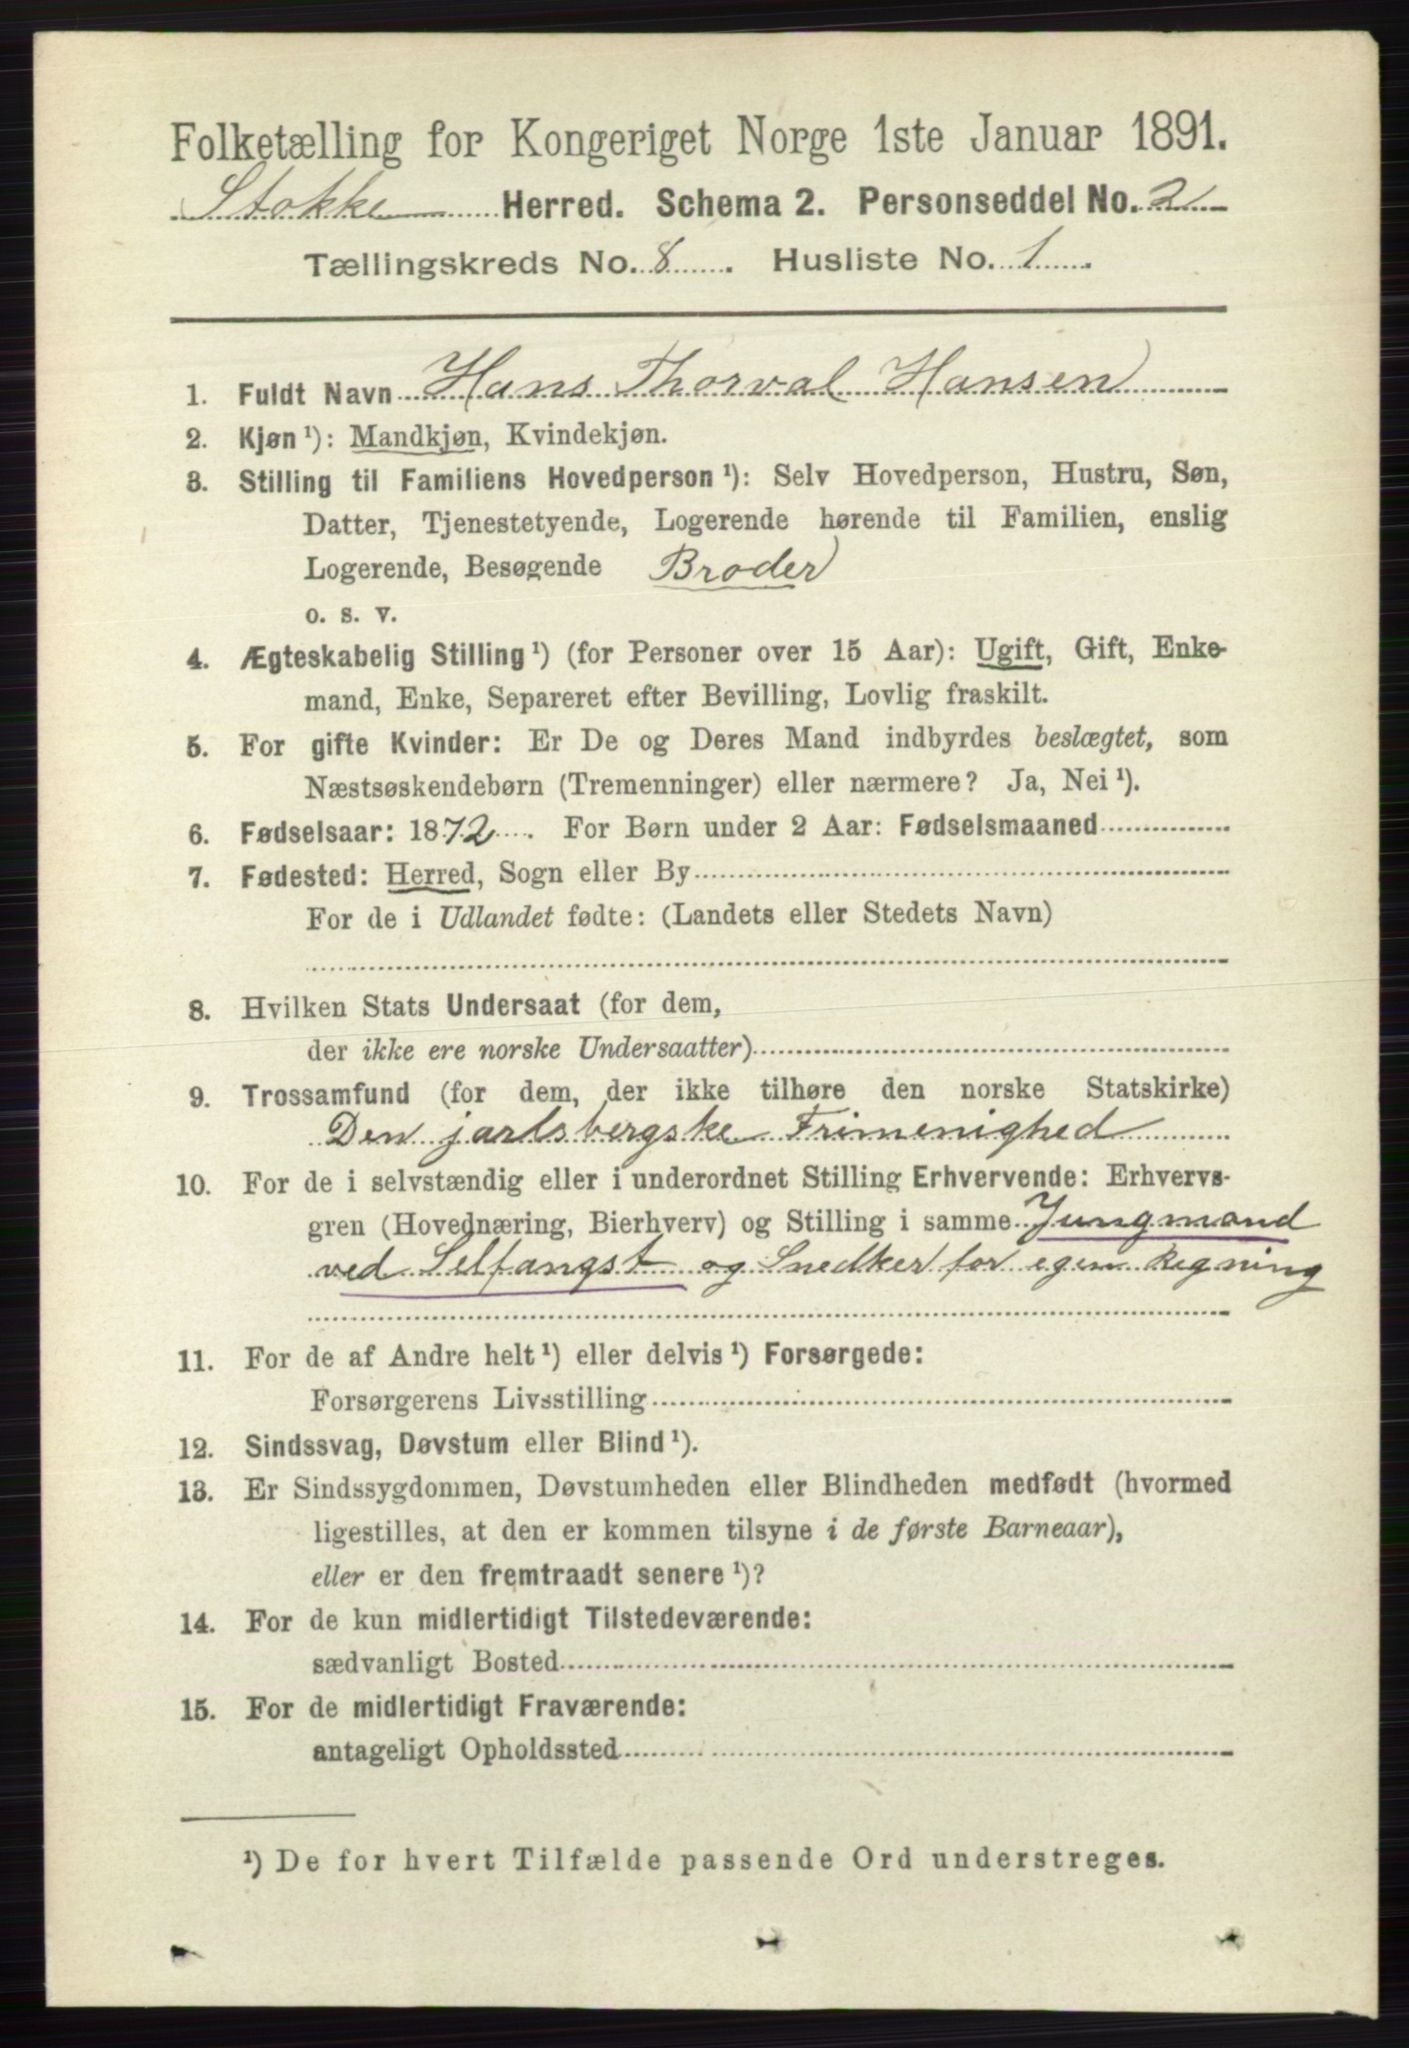 Folketælling for Kongeriget Norge 1ste Januar 1891.
Stokke Herred. Schema 2. Personseddel No. 2
Tællingskreds No. 8. Husliste No. 1
1. Fuldt Navn Hans Thorval Hansen
2. Kjøn ¹): Mandkjøn, Kvindekjøn.
3. Stilling til Familiens Hovedperson ¹): Selv Hovedperson, Hustru, Søn,
Datter, Tjenestetyende, Logerende hørende til Familien, enslig
Logerende, Besøgende Broder
o. s. v.
4. Ægteskabelig Stilling ¹) (for Personer over 15 Aar): Ugift, Gift, Enke-
mand, Enke, Separeret efter Bevilling, Lovlig fraskilt.
5. For gifte Kvinder: Er De og Deres Mand indbyrdes beslægtet, som
Næstsøskendebørn (Tremenninger) eller nærmere? Ja, Nei ¹).
6. Fødselsaar: 1872. For Børn under 2 Aar: Fødselsmaaned
7. Fødested: Herred, Sogn eller By
For de i Udlandet fødte: (Landets eller Stedets Navn)
8. Hvilken Stats Undersaat (for dem,
der ikke ere norske Undersaatter)
9. Trossamfund (for dem, der ikke tilhøre den norske Statskirke)
Den jarlsbergske Frimenighed
10. For de i selvstændig eller i underordnet Stilling Erhvervende: Erhvervs-
gren (Hovednæring, Bierhverv) og Stilling i samme Jungmand
ved Selfangst og Snedker for egen Regning
11. For de af Andre helt ¹) eller delvis ¹) Forsørgede:
Forsørgerens Livsstilling
12. Sindssvag, Døvstum eller Blind ¹).
13. Er Sindssygdommen, Døvstumheden eller Blindheden medfødt (hvormed
ligestilles, at den er kommen tilsyne i de første Barneaar),
eller er den fremtraadt senere ¹)?
14. For de kun midlertidigt Tilstedeværende:
sædvanligt Bosted
15. For de midlertidigt Fraværende:
antageligt Opholdssted
¹) De for hvert Tilfælde passende Ord understreges.